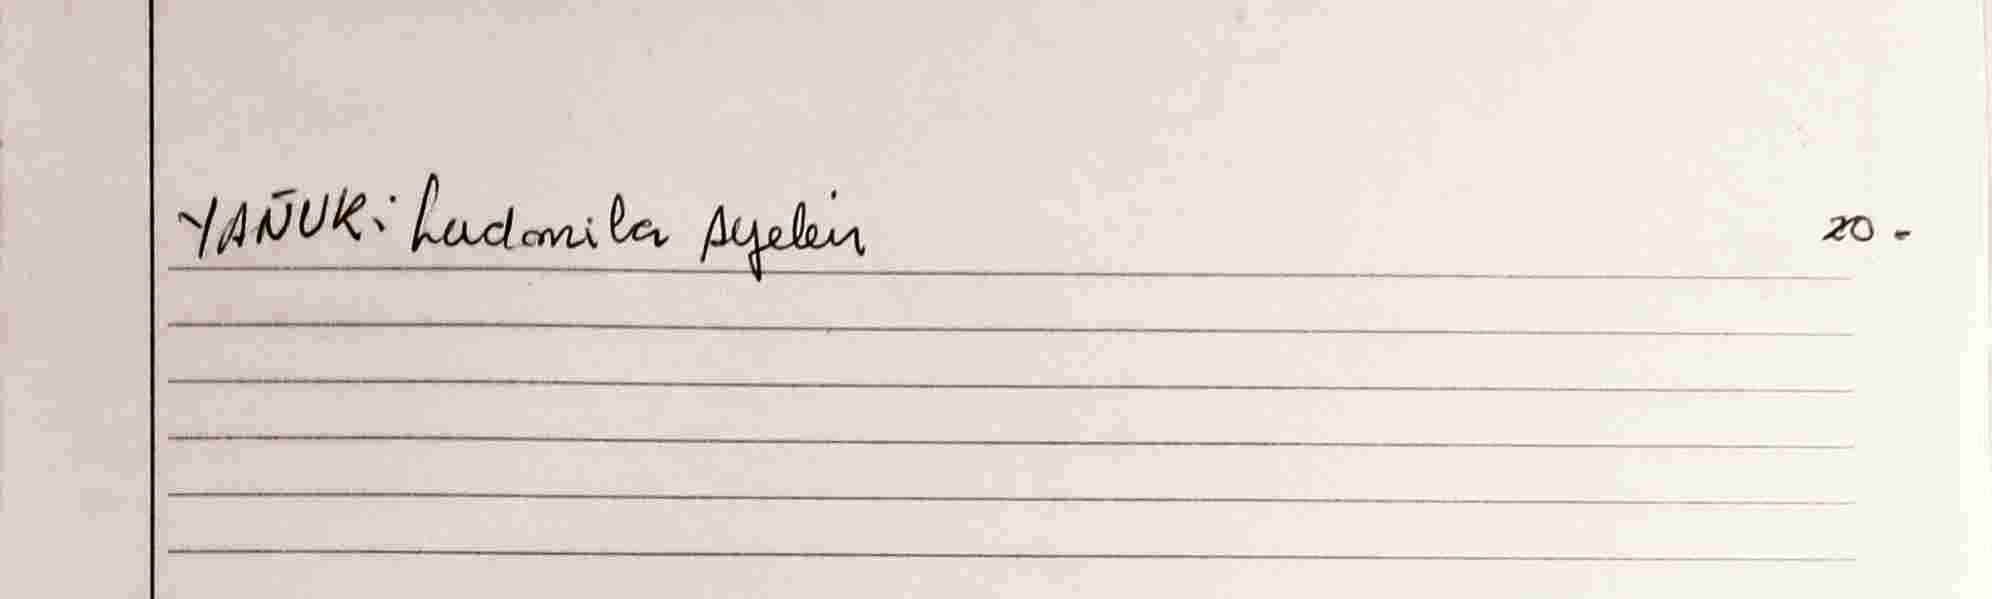 YAÑUK: Ludmila Ayelén 20.-